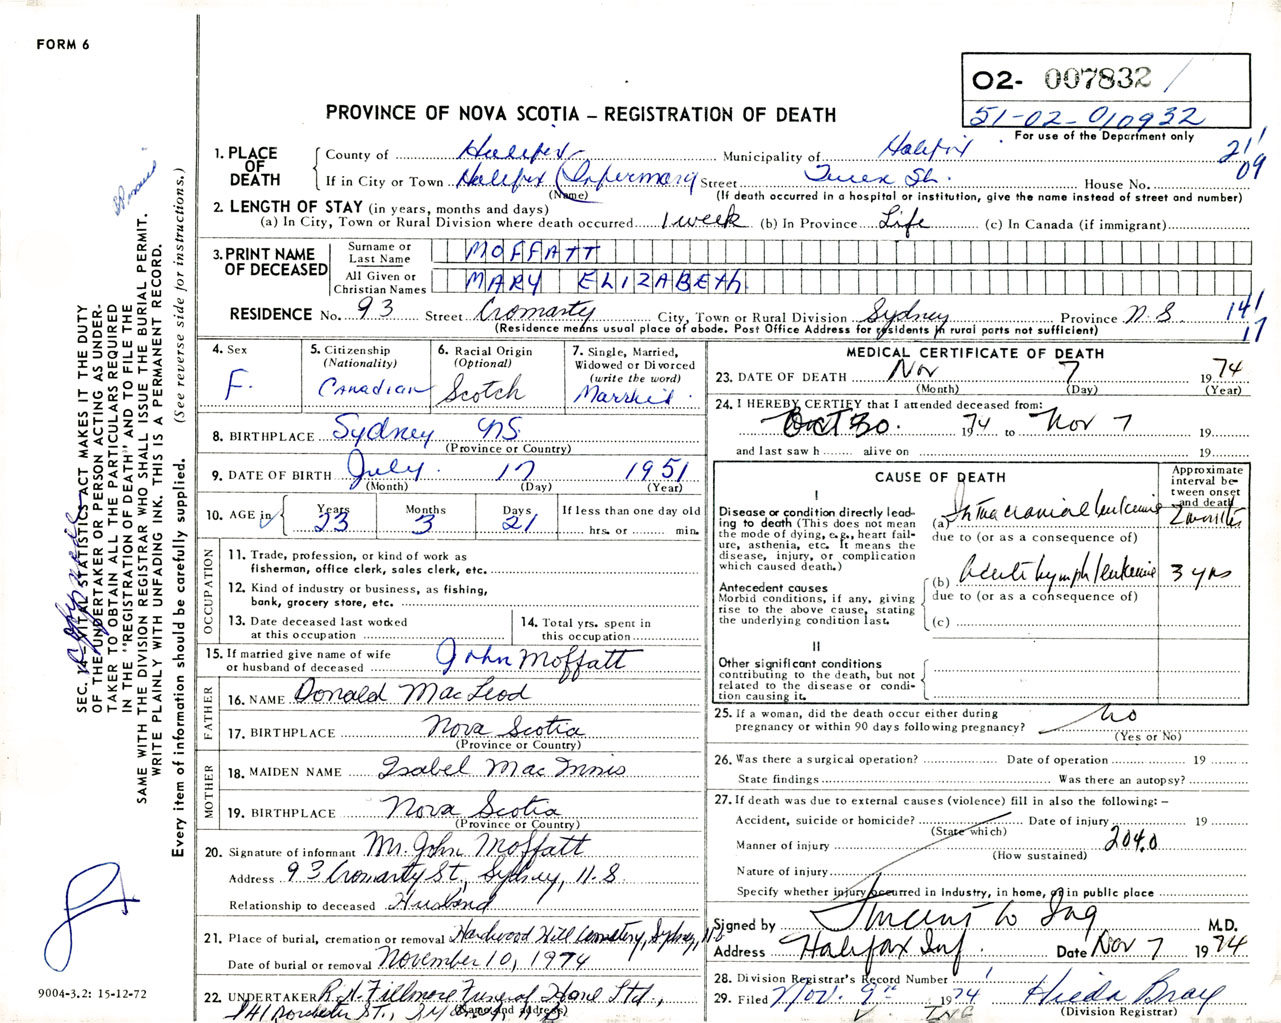 FORM 6
O2- 007832 /
51-02-010932
For use of the Department only
PROVINCE OF NOVA SCOTIA – REGISTRATION OF DEATH
21/
09
1. PLACE OF DEATH
County of Halifax Municipality of Halifax
If in City or Town Halifax (Infirmary Street Queen St. House No.
(Name) (If death occurred in a hospital or institution, give the name instead of street and number)
2. LENGTH OF STAY (in years, months and days)
(a) In City, Town or Rural Division where death occurred 1 week (b) In Province Life (c) In Canada (if immigrant)
3. PRINT NAME OF DECEASED
Surname or Last Name MOFFATT
All Given or Christian Names MARY ELIZABETH
RESIDENCE No. 93 Street Cromarty City, Town or Rural Division Sydney Province N.S. 14/
17
(Residence means usual place of abode. Post Office Address for residents in rural parts not sufficient)
4. Sex
F.
5. Citizenship
(Nationality)
Canadian
6. Racial Origin
(Optional)
Scotch
7. Single, Married,
Widowed or Divorced
(write the word)
Married.
8. BIRTHPLACE Sydney NS
(Province or Country)
9. DATE OF BIRTH July 17 1951
(Month) (Day) (Year)
10. AGE in
Years Months Days If less than one day old
23 3 21 hrs. or min.
OCCUPATION
11. Trade, profession, or kind of work as
fisherman, office clerk, sales clerk, etc.
12. Kind of industry or business, as fishing,
bank, grocery store, etc.
13. Date deceased last worked
at this occupation
14. Total yrs. spent in
this occupation
15. If married give name of wife
or husband of deceased John Moffatt
FATHER
16. NAME Donald MacLeod
17. BIRTHPLACE Nova Scotia
(Province or Country)
MOTHER
18. MAIDEN NAME Isabel MacInnis
19. BIRTHPLACE Nova Scotia
(Province or Country)
20. Signature of informant Mr. John Moffatt
Address 93 Cromarty St., Sydney, N.S.
Relationship to deceased Husband
21. Place of burial, cremation or removal Hardwood Hill Cemetery, Sydney, N.S
Date of burial or removal November 10, 1974
22. UNDERTAKER Fillmore Funeral Home Ltd.,
(Name and address)
MEDICAL CERTIFICATE OF DEATH
23. DATE OF DEATH Nov 7 1974
(Month) (Day) (Year)
24. I HEREBY CERTIFY that I attended deceased from:
Oct 30. 1974 to Nov 7 19
and last saw h alive on 19
CAUSE OF DEATH
Approximate
interval be-
tween onset
and death
I
Disease or condition directly lead-
ing to death (This does not mean
the mode of dying, e.g., heart fail-
ure, asthenia, etc. It means the
disease, injury, or complication
which caused death.)
(a) Intracranial leukemia 2 months
due to (or as a consequence of)
Antecedent causes
Morbid conditions, if any, giving
rise to the above cause, stating
the underlying condition last.
(b) Acute lymph leukemia 3 yrs
due to (or as a consequence of)
(c)
II
Other significant conditions
contributing to the death, but not
related to the disease or condi-
tion causing it.
25. If a woman, did the death occur either during
pregnancy or within 90 days following pregnancy? No
(Yes or No)
26. Was there a surgical operation? Date of operation 19
State findings Was there an autopsy?
27. If death was due to external causes (violence) fill in also the following: –
Accident, suicide or homicide? Date of injury 19
(State which)
Manner of injury 204.0
(How sustained)
Nature of injury
Specify whether injury occurred in industry, in home, or in public place
Signed by Vincent W Ing M.D.
Address Halifax Inf. Date Nov 7 1974
28. Division Registrar's Record Number
29. Filed Nov. 9th 1974 Hilda Bray
(Division Registrar)
SEC. STATISTICS ACT MAKES IT THE DUTY
OF THE UNDERTAKER OR PERSON ACTING AS UNDER-
TAKER TO OBTAIN ALL THE PARTICULARS REQUIRED
IN THE "REGISTRATION OF DEATH" AND TO FILE THE
SAME WITH THE DIVISION REGISTRAR WHO SHALL ISSUE THE BURIAL PERMIT.
WRITE PLAINLY WITH UNFADING INK. THIS IS A PERMANENT RECORD.
Every item of information should be carefully supplied. (See reverse side for instructions.)
9004-3.2: 15-12-72